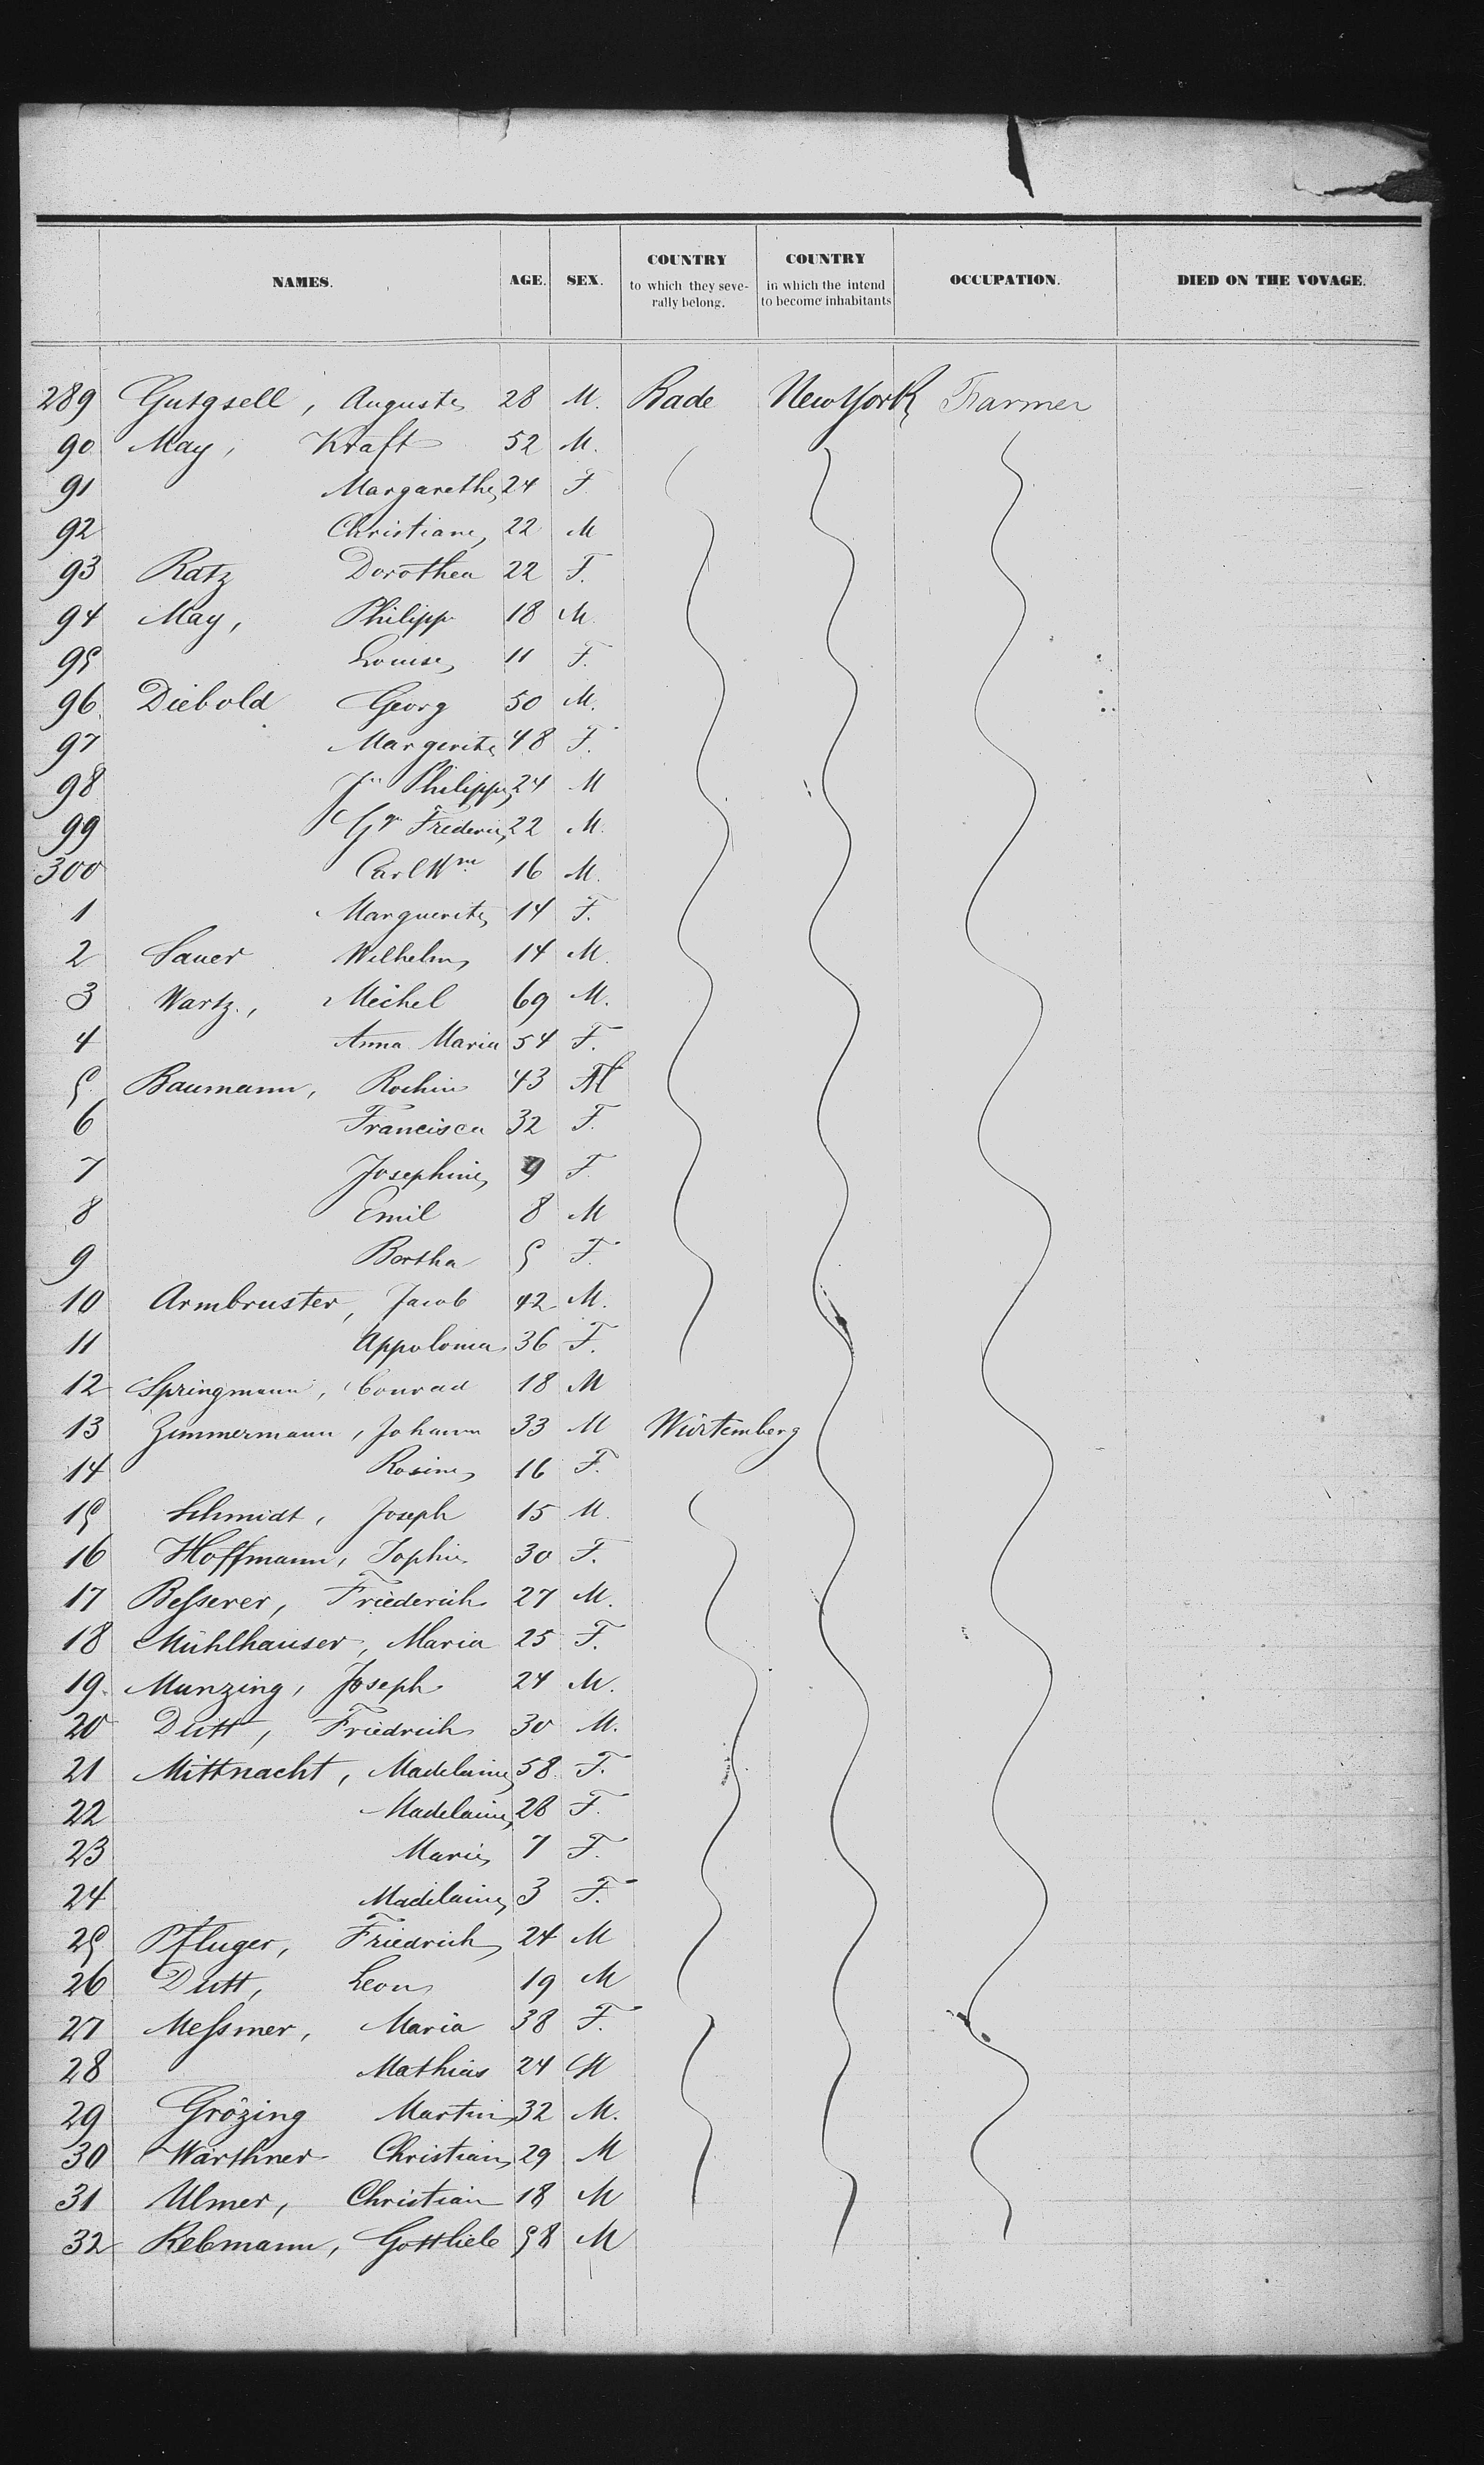 NAMES. AGE. SEX. COUNTRY to which they seve- rally belong. COUNTRY in which the intend to become inhabitants OCCUPATION. DIED ON THE VOVAGE.
289 Gutgsell, Auguste 28 M. Bade New York Farmer
90 May, Kraft 52 M.
91 Margarethe 24 F.
92 Christiane 22 M
93 Ratz Dorothea 22 F.
94 May, Philipp 18 M.
95 Louise 11 F.
96 Diebold Georg 50 M.
97 Margerite 48 F.
98 Philippe 24 M
99 Gg Frederic 22 M.
300 Carl Wm 16 M.
1 Marguerite 14 F.
2 Sauer Wilhelm 14 M.
3 Wartz., Michel 69 M.
4 Anna Maria 54 F.
5 Baumann, Rochin 43 M
6 Francisca 32 F.
7 Josephine 9 F.
8 Emil 8 M
9 Bertha 5 F.
10 Armbruster, Jacob 42 M.
11 Appolonia 36 F.
12 Springmann, Conrad 18 M
13 Zimmermann, Johann 33 M Würtemberg
14 Rosine 16 F.
15 Schmidt, Joseph 15 M.
16 Hoffmann, Sophie 30 F.
17 Besserer, Friederich 27 M.
18 Mühlhauser, Maria 25 F.
19. Munzing, Joseph 24 M.
20 Dutt, Friedrich 30 M.
21 Mittnacht, Madelaine 58 F.
22 Madelaine 28 F.
23 Marie 7 F.
24 Madelaine 3 F.
25 Pfluger, Friedrich 24 M
26 Dutt, Leon 19 M
27 Messmer, Maria 38 F.
28 Mathias 24 M
29 Grözing Martin 32 M.
30 Warthner Christian 29 M
31 Ulmer, Christian 18 M
32 Rebmann, Gottlieb 58 M